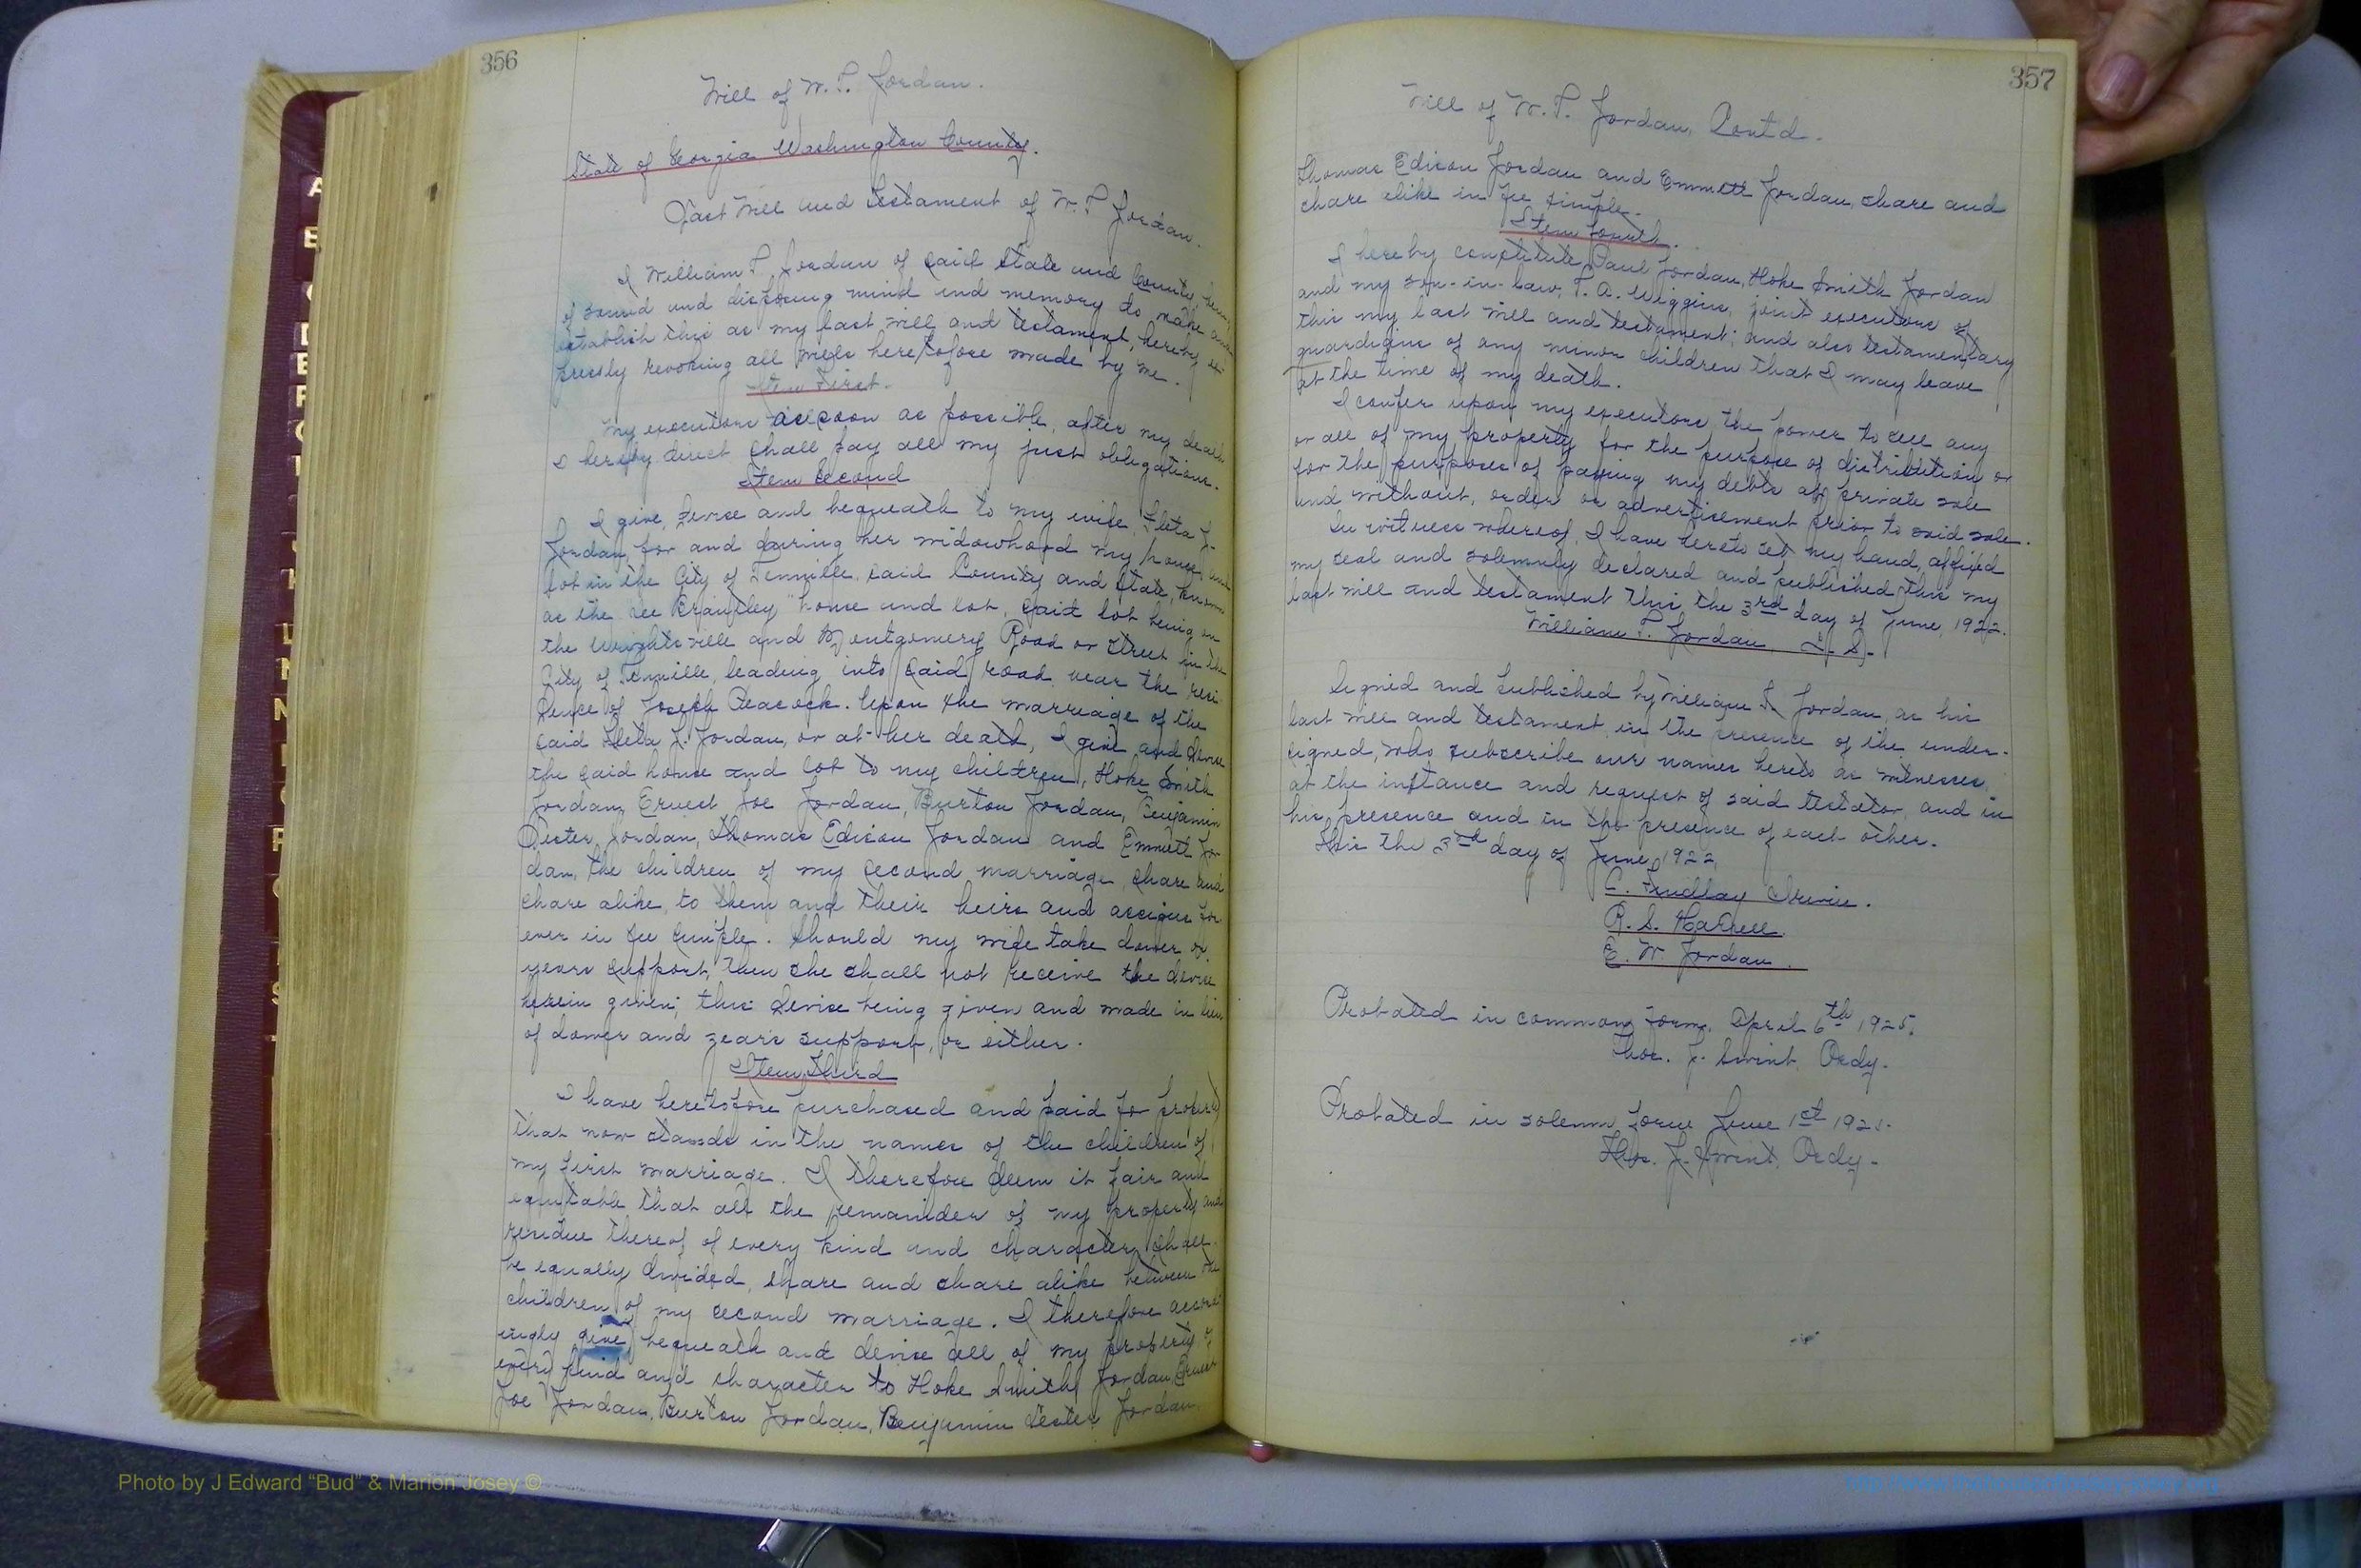 356
Will of W. T. Jordan.
State of Georgia Washington County.
Last Will and Testament of W. T. Jordan.
I William T. Jordan of said State and County, being
of sound and disposing mind and memory do make and
establish this as my last will and testament, hereby ex
pressly revoking all wills heretofore made by me.
Item First.
My executors as soon as possible, after my death
I hereby direct shall pay all my just obligations.
Item Second
I give, devise and bequeath to my wife, Fleta J.
Jordan, for and during her widowhood my house and
lot in the City of Tennille, said County and State, known
as the "Brantley" house and lot, said lot being on
the Wrightsville and Montgomery Road or Street in the
City of Tennille, leading into said road near the resi
dence of Joseph Peacock. Upon the marriage of the
said Fleta J. Jordan, or at her death, I give and devise
the said house and lot to my children, Hoke Smith
Jordan, Ernest Joe Jordan, Burton Jordan, Benjamin
Lester Jordan, Thomas Edison Jordan and Emmett Jor
dan, the children of my second marriage, share and
share alike, to them and their heirs and assigns for
ever in fee simple. Should my wife take dower or
years support, then she shall not receive the devise
herein given; this devise being given and made in lieu
of dower and years support, or either.
Item Third
I have heretofore purchased and paid for property
that now stands in the names of the children of
my first marriage. I therefore deem it fair and
equitable that all the remainder of my property and
residue thereof of every kind and character, shall
be equally divided, share and share alike between the
children of my second marriage. I therefore accord
ingly give, bequeath and devise all of my property of
every kind and character to Hoke Smith Jordan, Ernest
Joe Jordan, Burton Jordan, Benjamin Lester Jordan
357
Will of W. T. Jordan, Cont'd.
Thomas Edison Jordan and Emmett Jordan, share and
share alike in fee simple.
Item Fourth.
I hereby constitute Paul Jordan, Hoke Smith Jordan
and my son-in-law, T. A. Wiggins, joint executors of
this my last will and testament; and also testamentary
guardians of any minor children that I may leave
at the time of my death.
I confer upon my executors the power to sell any
or all of my property for the purpose of distribution or
for the purposes of paying my debts at private sale
and without, order or advertisement prior to said sale.
In witness whereof, I have hereto set my hand, affixed
my seal and solemnly declared and published this my
last will and testament this, the 3rd day of June, 1922.
William T. Jordan L. S.
Signed and published by William T. Jordan, as his
last will and testament, in the presence of the under-
signed, who subscribe our names hereto as witnesses,
at the instance and request of said testator, and in
his presence and in the presence of each other.
This the 3rd day of June, 1922.
C. Findlay Irwin.
R. S. Harrell.
E. W. Jordan.
Probated in common form, April 6th, 1925.
Thos. J. Swint, Ordy.
Probated in solemn form June 1st 1925.
Thos. J. Swint, Ordy.
Photo by J Edward "Bud" & Marion Josey ©